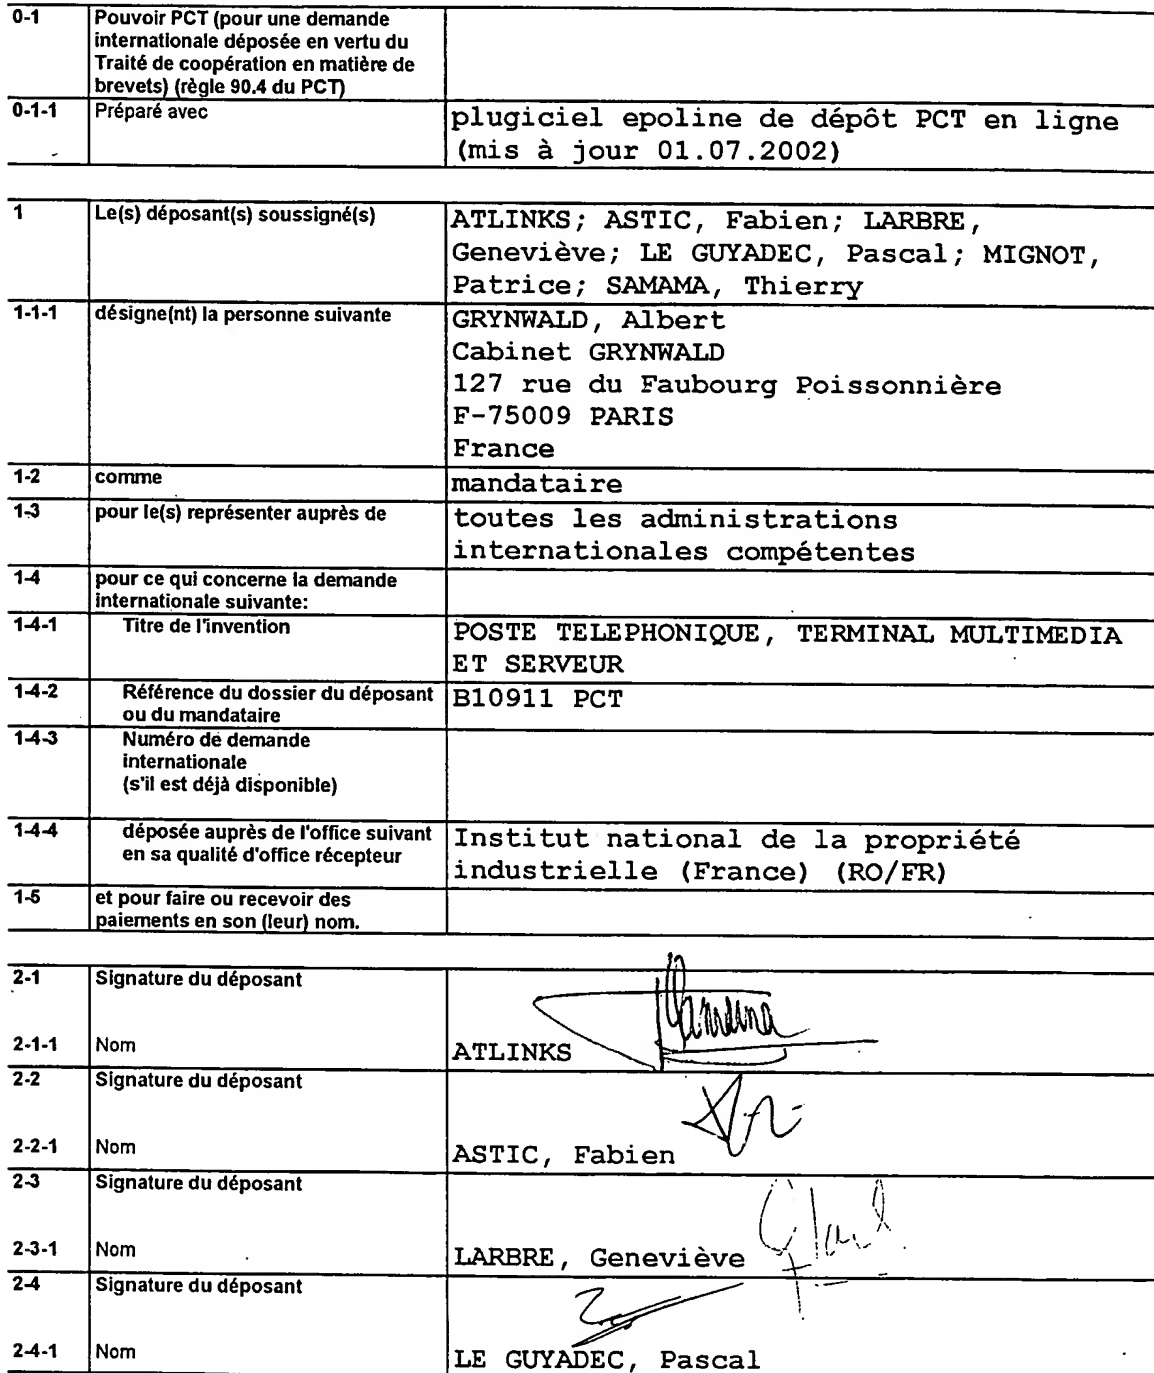 0-1 Pouvoir PCT (pour une demande
internationale déposée en vertu du
Traité de coopération en matière de
brevets) (règle 90.4 du PCT)
0-1-1 Préparé avec plugiciel epoline de dépôt PCT en ligne
(mis à jour 01.07.2002)
1 Le(s) déposant(s) soussigné(s) ATLINKS; ASTIC, Fabien; LARBRE,
Geneviève; LE GUYADEC, Pascal; MIGNOT,
Patrice; SAMAMA, Thierry
1-1-1 désigne(nt) la personne suivante GRYNWALD, Albert
Cabinet GRYNWALD
127 rue du Faubourg Poissonnière
F-75009 PARIS
France
1-2 comme mandataire
1-3 pour le(s) représenter auprès de toutes les administrations
internationales compétentes
1-4 pour ce qui concerne la demande
internationale suivante:
1-4-1 Titre de l'invention POSTE TELEPHONIQUE, TERMINAL MULTIMEDIA
ET SERVEUR
1-4-2 Référence du dossier du déposant B10911 PCT
ou du mandataire
1-4-3 Numéro de demande
internationale
(s'il est déjà disponible)
1-4-4 déposée auprès de l'office suivant Institut national de la propriété
en sa qualité d'office récepteur industrielle (France) (RO/FR)
1-5 et pour faire ou recevoir des
paiements en son (leur) nom.
2-1 Signature du déposant
2-1-1 Nom ATLINKS
2-2 Signature du déposant
2-2-1 Nom ASTIC, Fabien
2-3 Signature du déposant
2-3-1 Nom LARBRE, Geneviève
2-4 Signature du déposant
2-4-1 Nom LE GUYADEC, Pascal